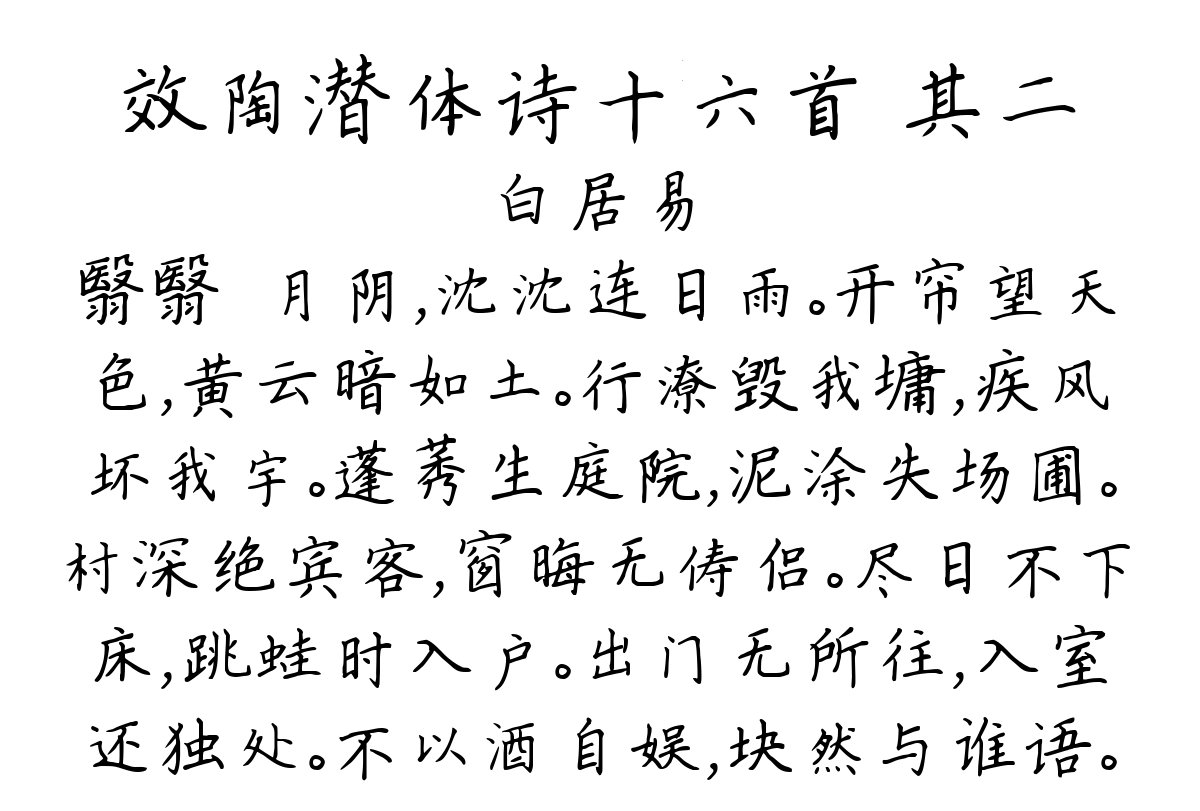 效陶潜体诗十六首 其二
白居易
翳翳 月阴,沈沈连日雨。开帘望天
色,黄云暗如土。行潦毁我墉,疾风
坏我宇。蓬莠生庭院,泥涂失场圃。
村深绝宾客,窗晦无俦侣。尽日不下
床,跳蛙时入户。出门无所往,入室
还独处。不以酒自娱,块然与谁语。